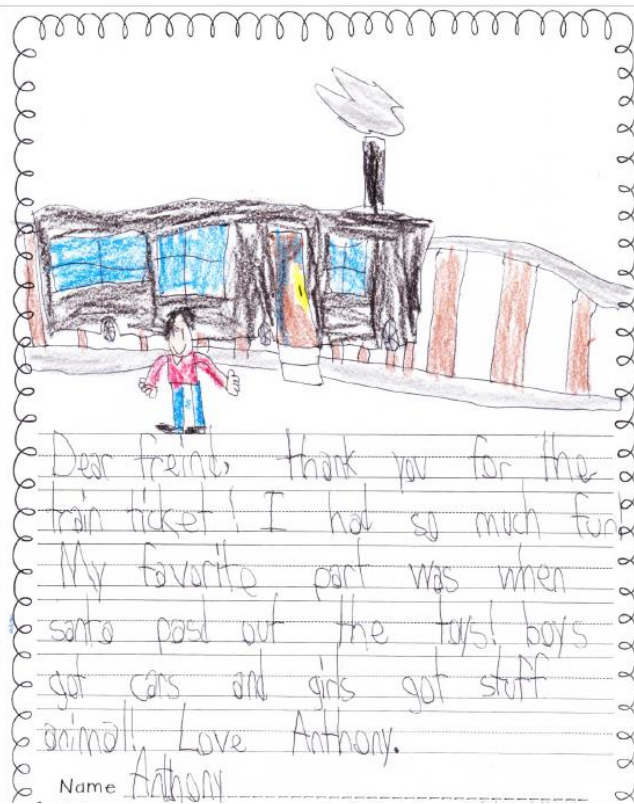 Dear freind, thank you for the
train ticket! I had so much fun
My favorite part was when
santa pasd out the toys! boys
got cars and girls got stuff
animal! Love Anthony.
Name Anthony